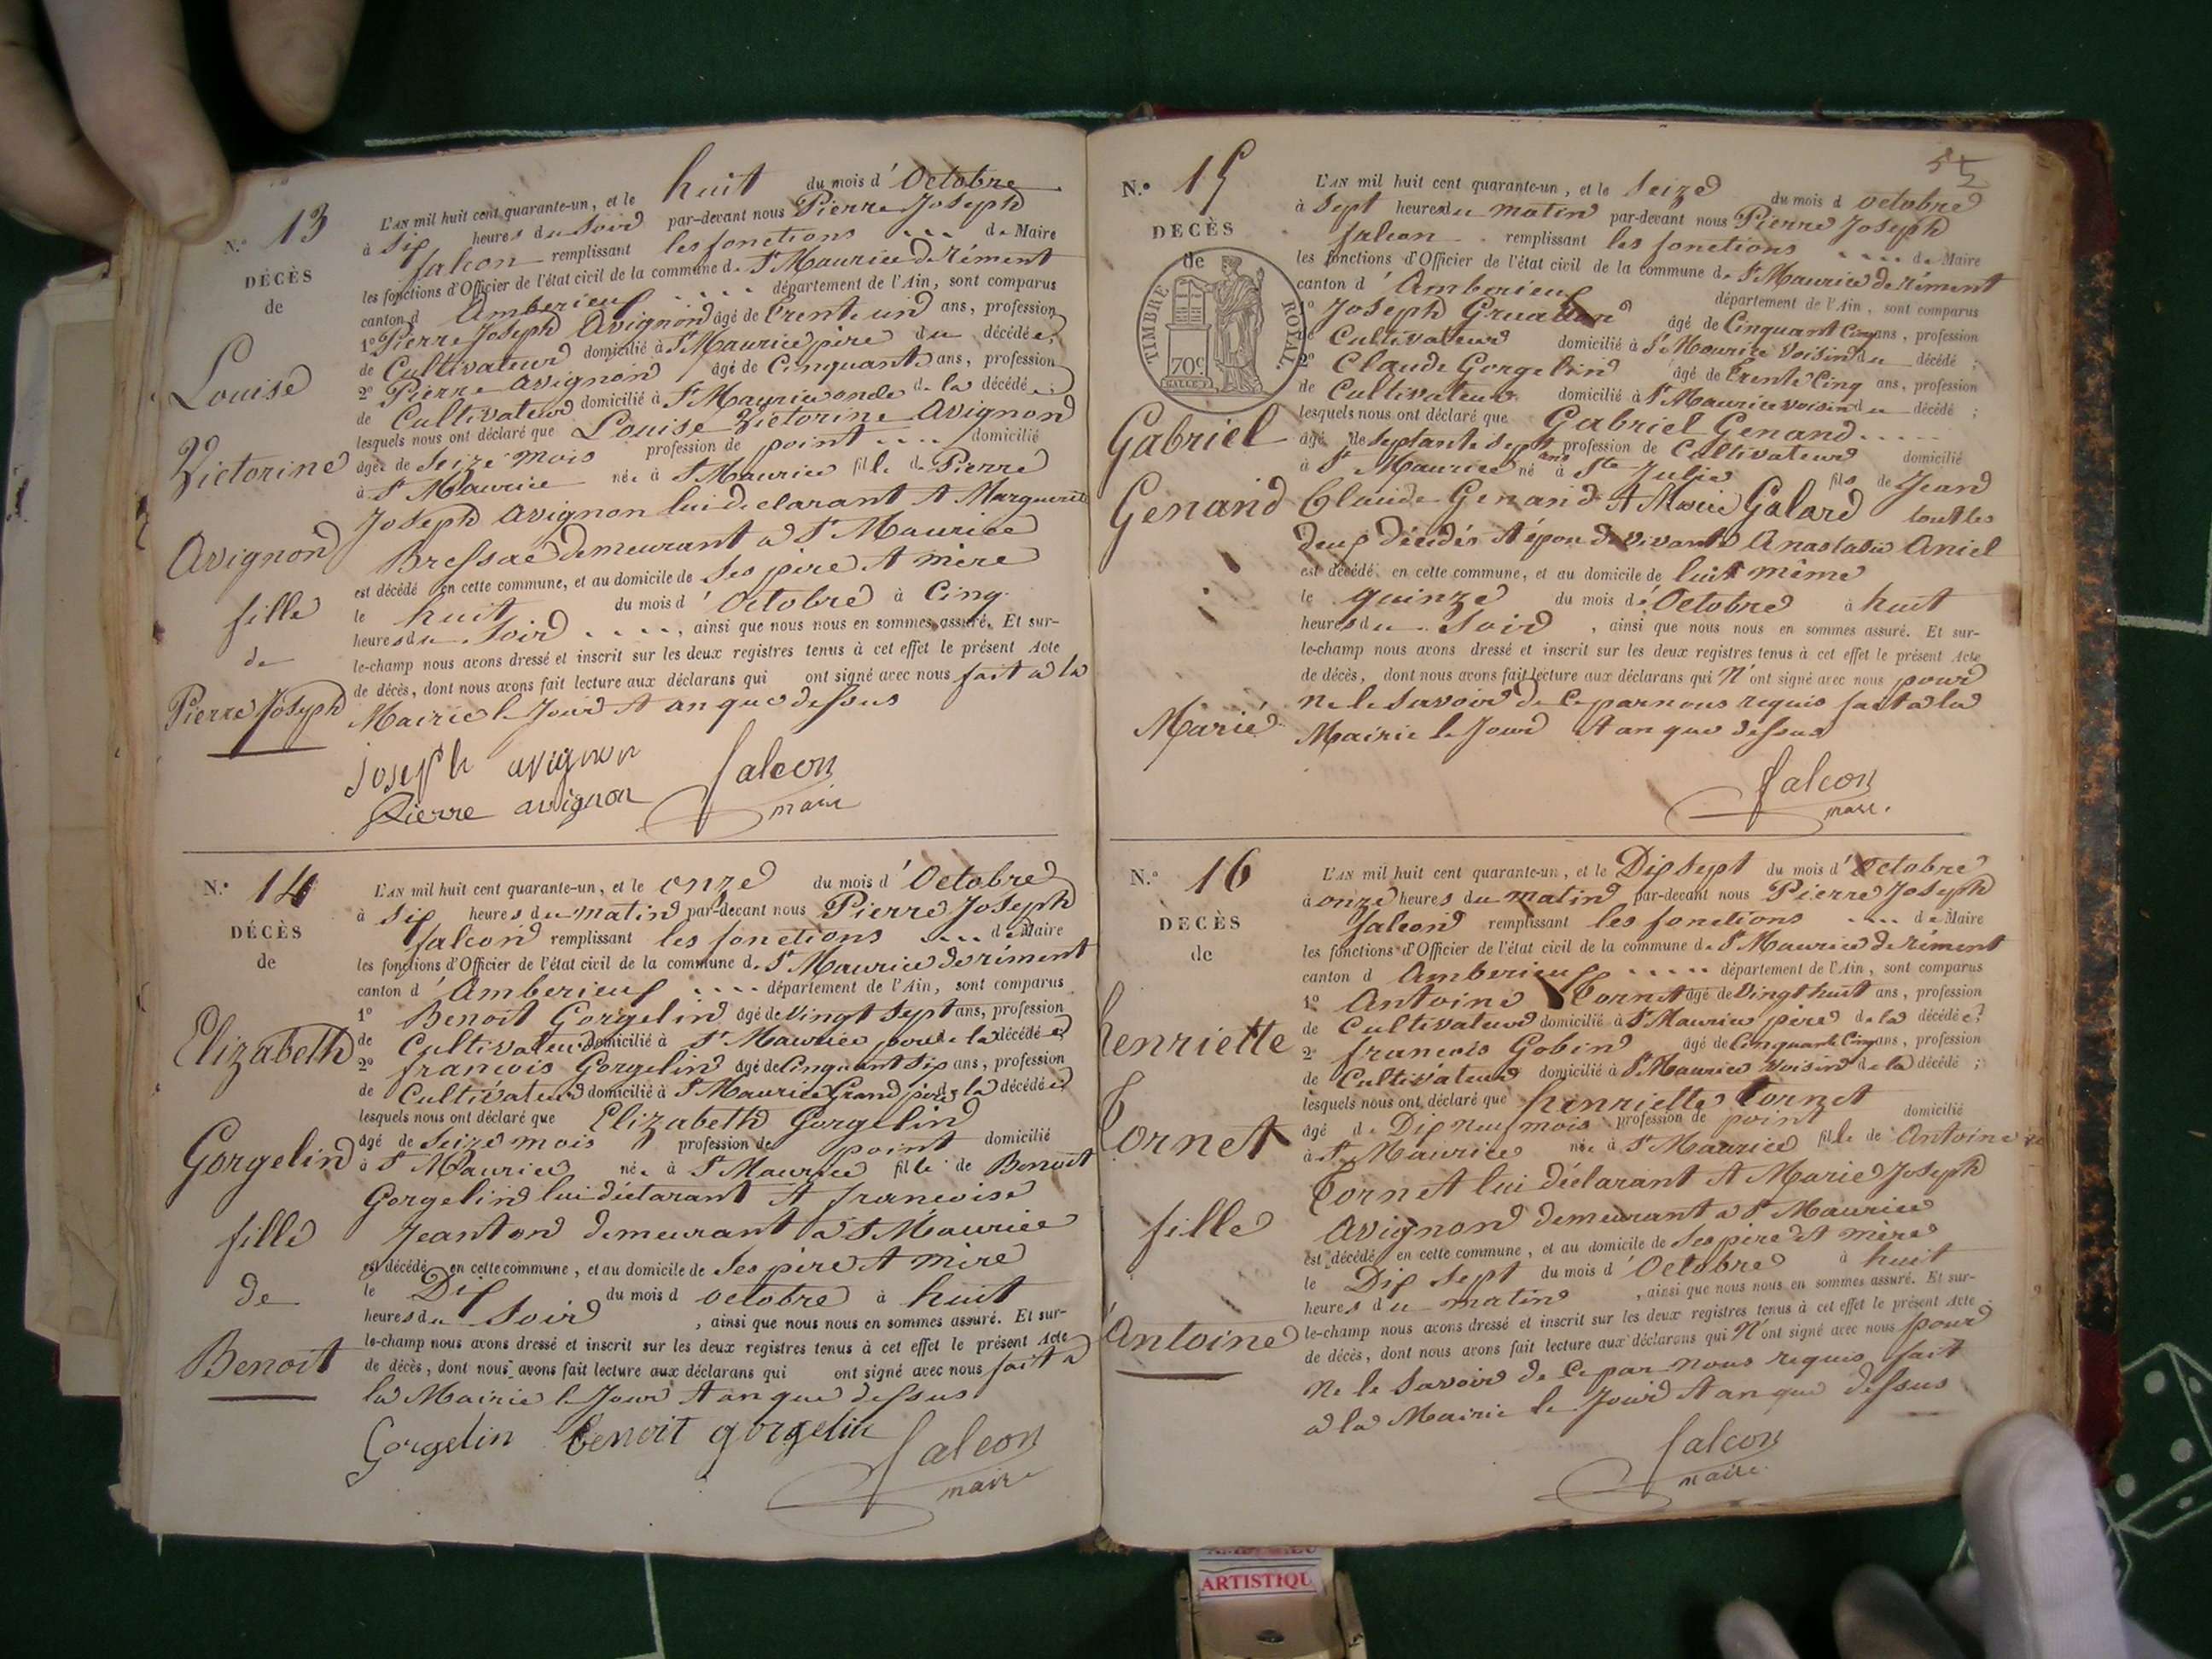 N.° 13
DÉCÈS
de
Louise
Victorine
Avignon
fille
de
Pierre Joseph
L'AN mil huit cent quarante-un, et le huit du mois d'Octobre
à Six heures du Soir par-devant nous Pierre Joseph
falcon remplissant les fonctions .... de Maire
les fonctions d'Officier de l'état civil de la commune de St Maurice de rément
canton d'Amberieux .... département de l'Ain, sont comparus
1° Pierre Joseph Avignon âgé de trente un ans, profession
de Cultivateur domicilié à St Maurice père du décédée;
2° Pierre avignon âgé de Cinquante ans, profession
de Cultivateur domicilié à St Maurice oncle de la décédée;
lesquels nous ont déclaré que Louise Victorine Avignon
âgée de Seize mois profession de point .... domicilié
à St Maurice née à St Maurice fille de Pierre
Joseph Avignon lui declarant et Marguerite
Bressae demeurant a St Maurice
est décédé en cette commune, et au domicile de Ses père et mère
le huit du mois d'Octobre à Cinq
heures du Soir ...., ainsi que nous nous en sommes assuré. Et sur-
le-champ nous avons dressé et inscrit sur les deux registres tenus à cet effet le présent Acte
de décès, dont nous avons fait lecture aux déclarans qui ont signé avec nous fait a la
Mairie le Jour et an que dessus
joseph avignon falcon
Pierre avignon maire
N.° 14
DÉCÈS
de
Elizabeth
Gorgelin
fille
de
Benoit
L'AN mil huit cent quarante-un, et le onze du mois d'Octobre
à Six heures du matin par-devant nous Pierre Joseph
falcon remplissant les fonctions .... de Maire
les fonctions d'Officier de l'état civil de la commune de St Maurice de rément
canton d'Amberieux .... département de l'Ain, sont comparus
1° Benoit Gorgelin âgé de Vingt Sept ans, profession
de Cultivateur domicilié à St Maurice père de la décédée
2° francois Gorgelin âgé de Cinquant Six ans, profession
de Cultivateur domicilié à St Maurice Grand père de la décédée
lesquels nous ont déclaré que Elizabeth Gorgelin
âgé de Seize mois profession de point domicilié
à St Maurice née à St Maurice fille de Benoit
Gorgelin lui déclarant et francoise
Jeanton demeurant a St Maurice
est décédé en cette commune, et au domicile de Ses père et mère
le Dix du mois d octobre à huit
heures du Soir, ainsi que nous nous en sommes assuré. Et sur-
le-champ nous avons dressé et inscrit sur les deux registres tenus à cet effet le présent Acte
de décès, dont nous avons fait lecture aux déclarans qui ont signé avec nous fait a
la Mairie le Jour et an que dessus
Gorgelin benoit gorgelin falcon
maire
N.° 15
DÉCÈS
de
TIMBRE ROYAL
70c
Gabriel
Genand
Marié
L'AN mil huit cent quarante-un, et le Seize du mois d octobre
à Sept heures du matin par-devant nous Pierre Joseph
falcon remplissant les fonctions .... de Maire
les fonctions d'Officier de l'état civil de la commune de St Maurice de rément
canton d'Amberieux département de l'Ain, sont comparus
1° Joseph âgé de Cinquant Cinq ans, profession
de Cultivateur domicilié à St Maurice Voisin du décédé;
2° Claude Gorgelin âgé de trente Cinq ans, profession
de Cultivateur domicilié à St Maurice voisin du décédé;
lesquels nous ont déclaré que Gabriel Genand .....
âgé de Septante Sept ans profession de Cultivateur domicilié
à St Maurice né à Ste Julie fils de Jean
Claude Genand et Marie Galard tout les
deux décédés et époux de vivante Anastasie Aniel
est décédé en cette commune, et au domicile de luit même
le quinze du mois d'Octobre à huit
heures du Soir, ainsi que nous nous en sommes assuré. Et sur-
le-champ nous avons dressé et inscrit sur les deux registres tenus à cet effet le présent Acte
de décès, dont nous avons fait lecture aux déclarans qui N'ont signé avec nous pour
ne le Savoir de Ce par nous requis fait a la
Mairie le Jour et an que dessus
falcon
maire.
N.° 16
DÉCÈS
de
henriette
Tornet
fille
Antoine
L'AN mil huit cent quarante-un, et le Dix Sept du mois d'Octobre
à onze heures du matin par-devant nous Pierre Joseph
falcon remplissant les fonctions .... de Maire
les fonctions d'Officier de l'état civil de la commune de St Maurice de rément
canton d Amberieux ..... département de l'Ain, sont comparus
1° Antoine Tornet âgé de Vingt huit ans, profession
de Cultivateur domicilié à St Maurice père de la décédée;
2° francois Gobin âgé de Cinquante Cinq ans, profession
de Cultivateur domicilié à St Maurice Voisin de la décédé;
lesquels nous ont déclaré que henriette Tornet
âgé de Dix neuf mois profession de point domicilié
à St Maurice née à St Maurice fille de Antoine
Tornet lui déclarant et Marie Joseph
Avignon demeurant a St Maurice
est décédé en cette commune, et au domicile de Ses père et mère
le Dix Sept du mois d'Octobre à huit
heures du matin, ainsi que nous nous en sommes assuré. Et sur-
le-champ nous avons dressé et inscrit sur les deux registres tenus à cet effet le présent Acte
de décès, dont nous avons fait lecture aux déclarans qui N'ont signé avec nous pour
ne le Savoir de Ce par nous requis fait
a la Mairie le Jour et an que dessus
falcon
maire
ARTISTIQU